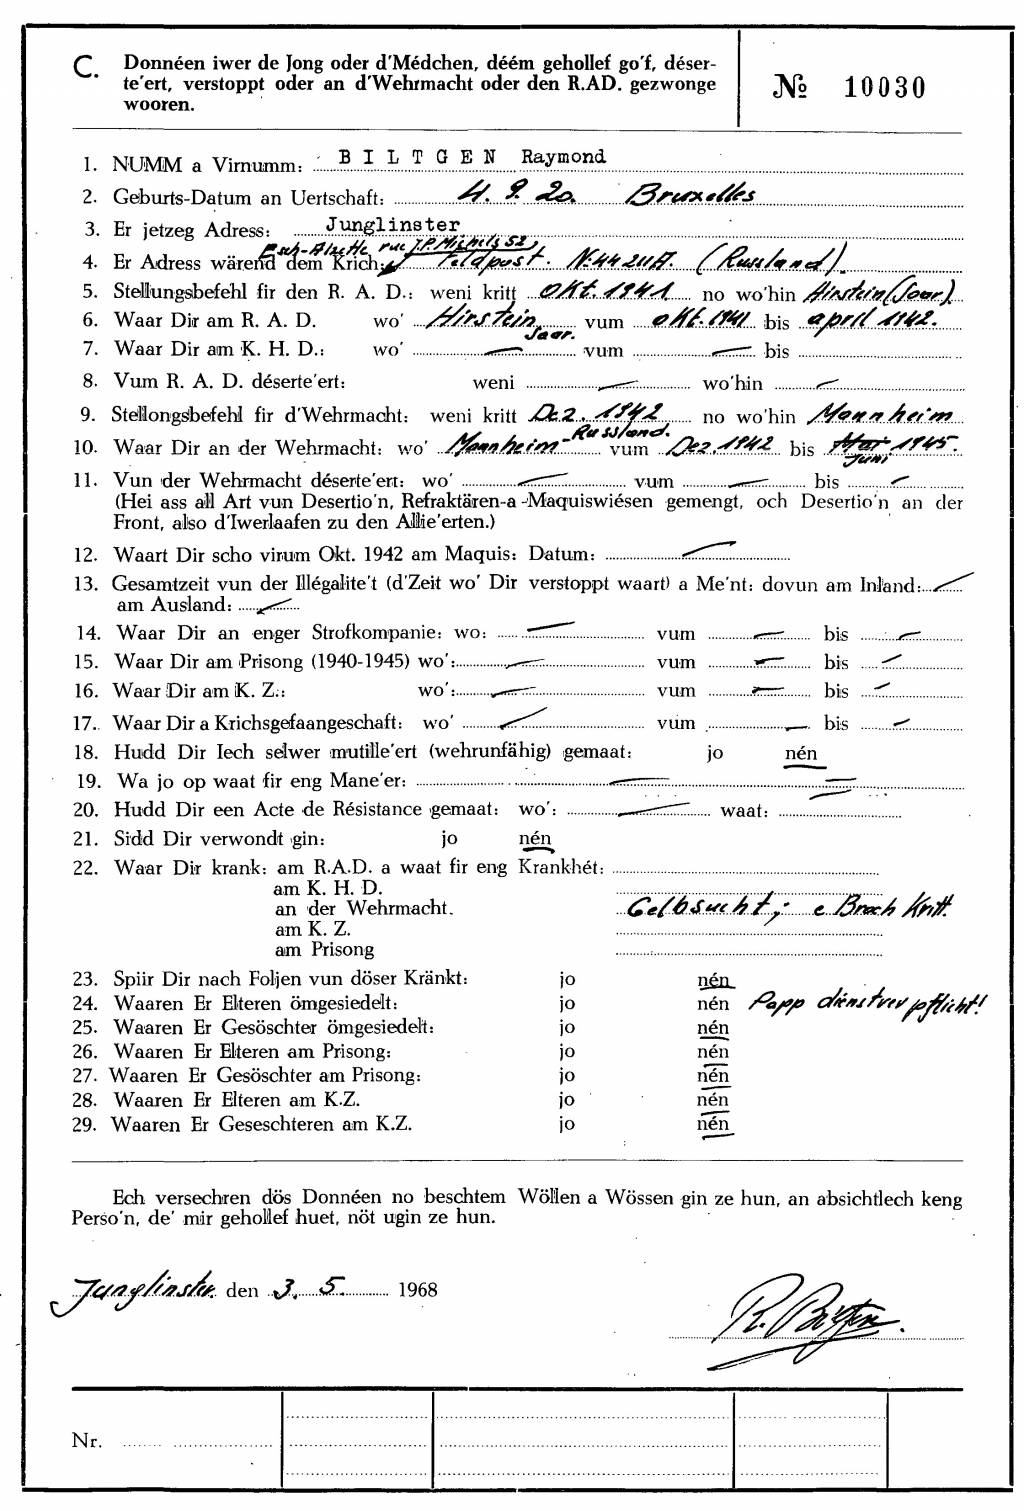 C. Donnéen iwer de Jong oder d'Médchen, déém gehollef go'f, déser-
te'ert, verstoppt oder an d'Wehrmacht oder den R.AD. gezwonge
wooren.
№ 10030
1. NUMM a Virnumm: BILTGEN Raymond
2. Geburts-Datum an Uertschaft: 4. 9. 20. Bruxelles
3. Er jetzeg Adress: Junglinster
Esch-Alzette rue J.P. Michels 52,
4. Er Adress wärend dem Krich: Feldpost. Nr 44211A. (Russland)
5. Stellungsbefehl fir den R. A. D.: weni kritt Okt. 1941 no wo'hin Hirstein (Saar).
6. Waar Dir am R. A. D. wo' Hirstein Saar. vum okt. 1941 bis april 1942.
7. Waar Dir am K. H. D.: wo' — vum — bis
8. Vum R. A. D. déserte'ert: weni — wo'hin —
9. Stellongsbefehl fir d'Wehrmacht: weni kritt Dez. 1942 no wo'hin Mannheim
10. Waar Dir an der Wehrmacht: wo' Mannheim-Russland. vum Dez. 1942 bis Mai Juni 1945.
11. Vun der Wehrmacht déserte'ert: wo' — vum — bis —
(Hei ass all Art vun Desertio'n, Refraktären-a -Maquiswiésen gemengt, och Desertio'n an der
Front, also d'Iwerlaafen zu den Allie'erten.)
12. Waart Dir scho virum Okt. 1942 am Maquis: Datum: —
13. Gesamtzeit vun der Illégalite't (d'Zeit wo' Dir verstoppt waart) a Me'nt: dovun am Inland: —
am Ausland: —
14. Waar Dir an enger Strofkompanie: wo: — vum — bis —
15. Waar Dir am Prisong (1940-1945) wo': — vum — bis —
16. Waar Dir am K. Z.: wo': — vum — bis —
17. Waar Dir a Krichsgefaangeschaft: wo' — vum — bis —
18. Hudd Dir Iech selwer mutille'ert (wehrunfähig) gemaat: jo nén
19. Wa jo op waat fir eng Mane'er: — —
20. Hudd Dir een Acte de Résistance gemaat: wo': — waat: —
21. Sidd Dir verwondt gin: jo nén
22. Waar Dir krank: am R.A.D. a waat fir eng Krankhét:
am K. H. D.
an der Wehrmacht. Gelbsucht; e Broch Kritt.
am K. Z.
am Prisong
23. Spiir Dir nach Foljen vun döser Kränkt: jo nén
24. Waaren Er Elteren ömgesiedelt: jo nén Papp dienstverpflicht!
25. Waaren Er Gesöschter ömgesiedelt: jo nén
26. Waaren Er Elteren am Prisong: jo nén
27. Waaren Er Gesöschter am Prisong: jo nén
28. Waaren Er Elteren am K.Z. jo nén
29. Waaren Er Geseschteren am K.Z. jo nén
Ech versechren dös Donnéen no beschtem Wöllen a Wössen gin ze hun, an absichtlech keng
Perso'n, de' mir gehollef huet, nöt ugin ze hun.
Junglinster. den 3. 5. 1968
R. Biltgen.
Nr.